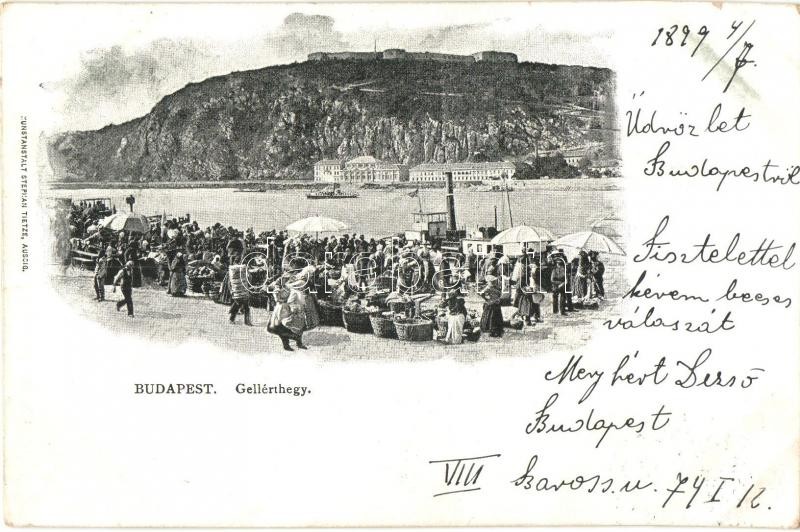 1899 4/7.
Üdvözlet
Budapestről
Tisztelettel
kérem becses
válaszát
Dezső
Budapest
VIII Baross u. 74 I 12.
BUDAPEST. Gellérthegy.
KUNSTANSTALT STEPHAN TIETZE, AUSSIG.
darabanth